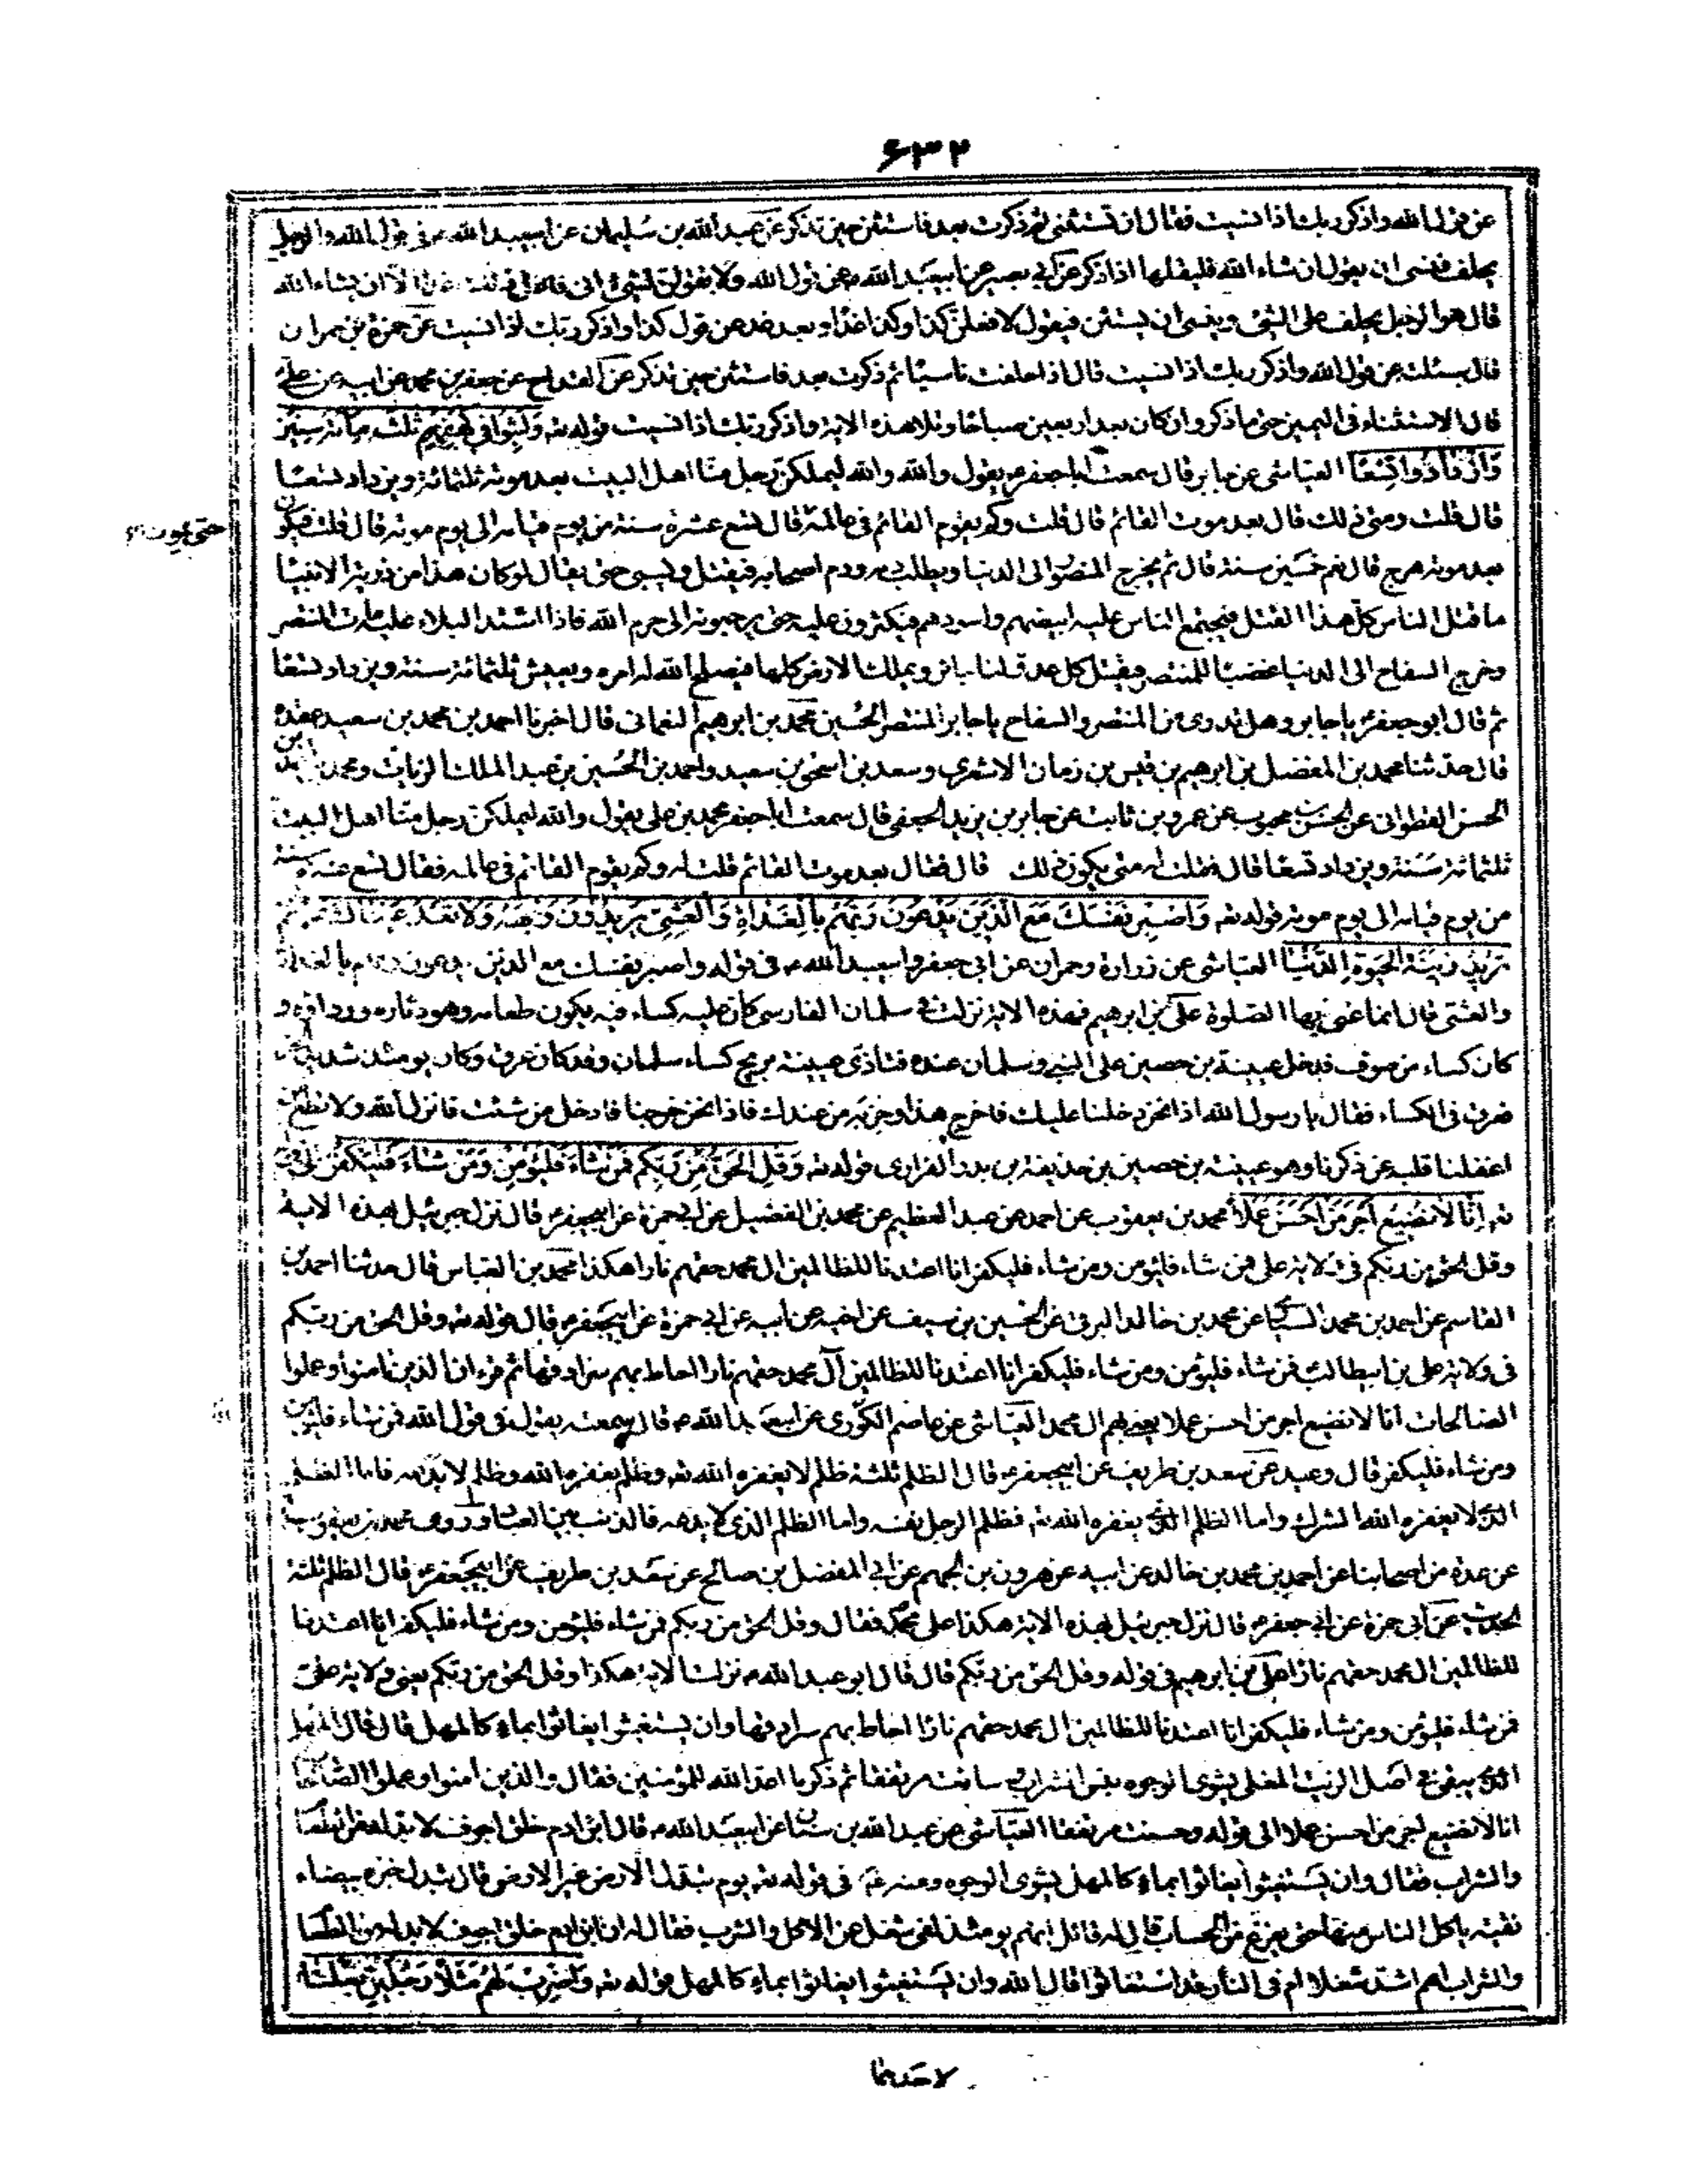 ۶۳۲
عن قول الله واذكر ربك اذا نسيت فقال ان تستثنى ثم ذكرت بعد فاستثن حين تذكر عن عبد الله بن سليمان عن ابيعبد الله ع فى قول الله الرجل
يحلف فنسى ان يقول ان شاء الله فليقلها اذا ذكر عن ابى بصير عن ابيعبد الله ع عن قول الله ولا تقولن لشىء انى فاعل ذلك غدا الا ان يشاء الله
قال هو الرجل يحلف على الشىء وينسى ان يستثن فيقول لافعلن كذا وكذا غدا وبعد غد عن قول كذا واذكر ربك اذا نسيت عن حمزة بن حمران
قال سئلته عن قول الله واذكر ربك اذا نسيت قال اذا حلفت ناسيا ثم ذكرت بعد فاستثن حين تذكر عن القداح عن جعفر بن محمد عن ابيه عن على
قال الاستثناء فى اليمين حتى ما ذكر وان كان بعد اربعين صباحا وتلا هذه الاية واذكر ربك اذا نسيت قوله تعه ولبثوا فى كهفهم ثلث مائة سنين
وازدادوا تسعا العياشى عن جابر قال سمعت ابا جعفر ع يقول والله والله ليملكن رجل منا اهل البيت بعد موته ثلثمائة ويزداد تسعا
قال قلت ومتى ذلك قال بعد موت القائم قال قلت وكم يقوم القائم فى عالمه قال تسع عشرة سنة من يوم قيامه الى يوم موته قال قلت فيكون
حتى يموت
بعد موته هرج قال نعم خمسين سنة قال ثم يخرج المنصور الى الدنيا ويطلب دمه ودم اصحابه فيقتل ويسبى حتى يقال لو كان هذا من ذرية الانبياء
ما قتل الناس كل هذا القتل فيجتمع الناس عليه ابيضهم واسودهم فيكثرون عليه حتى يرجونه الى حرم الله فاذا اشتد البلاء عليه مات المنتصر
وخرج السفاح الى الدنيا غضبا للمنتصر فيقتل كل عدو لنا جائر ويملك الارض كلها فيصلح الله له امره ويعيش ثلثمائة سنة ويزداد تسعا
ثم قال ابو جعفر ع يا جابر وهل تدرى من المنتصر والسفاح يا جابر المنتصر الحسين محمد بن ابرهيم النعمانى قال اخبرنا احمد بن محمد بن سعيد عقدة
قال حدثنا محمد بن المفضل بن ابرهيم بن قيس بن زمان الاشعرى وسعد بن اسحق بن سعيد واحمد بن الحسين بن عبد الملك الزيات ومحمد بن احمد
الحسن القطوانى عن الحسن بن محبوب عن عمرو بن ثابت عن جابر بن يزيد الجعفى قال سمعت ابا جعفر محمد بن على يقول والله ليملكن رجل منا اهل البيت
ثلثمائة سنة ويزداد تسعا قال فقلت له متى يكون ذلك قال فقال بعد موت القائم قلت له وكم يقوم القائم فى عالمه فقال تسع عشرة سنة
من يوم قيامه الى يوم موته قوله تعه واصبر نفسك مع الذين يدعون ربهم بالغداة والعشى يريدون وجهه ولا تعد عيناك عنهم
تريد زينة الحيوة الدنيا العياشى عن زرارة وحمران عن ابى جعفر وابيعبد الله ع فى قوله واصبر نفسك مع الذين يدعون ربهم بالغداة
والعشى قال انما عنى بها الصلوة على بن ابرهيم فهذه الاية نزلت فى سلمان الفارسى كان عليه كساء فيه يكون طعامه وهو دثاره ورداؤه و
كان كساء من صوف فدخل عيينة بن حصين على النبى وسلمان عنده فتاذى عيينة بريح كساء سلمان وقد كان عرق وكان يومئذ شديد الحر
فعرق فى الكساء فقال يا رسول الله اذا نحن دخلنا عليك فاخرج هذا وحزبه من عندك فاذا نحن خرجنا فادخل من شئت فانزل الله ولا تطع من
اغفلنا قلبه عن ذكرنا وهو عيينة بن حصين بن حذيفة بن بدر الفزارى قوله تعه وقل الحق من ربكم فمن شاء فليؤمن ومن شاء فليكفر الى قوله
تعه انا لا نضيع اجر من احسن عملا محمد بن يعقوب عن احمد عن عبد العظيم عن محمد بن الفضيل عن ابى حمزة عن ابيجعفر ع قال نزل جبرئيل بهذه الاية
وقل الحق من ربكم فى ولاية على فمن شاء فليؤمن ومن شاء فليكفر انا اعتدنا للظالمين ال محمد حقهم نارا هكذا محمد بن العباس قال حدثنا احمد بن
القاسم عن احمد بن محمد السيارى عن محمد بن خالد البرقى عن الحسين بن سيف عن اخيه عن ابيه عن ابى حمزة عن ابيجعفر ع قال قوله تعه وقل الحق من ربكم
فى ولاية على بن ابيطالب فمن شاء فليؤمن ومن شاء فليكفر انا اعتدنا للظالمين آل محمد حقهم نارا احاط بهم سرادقها ثم قرء ان الذين امنوا وعملوا
الصالحات انا لا نضيع اجر من احسن عملا يعنى بهم ال محمد العياشى عن عاصم الكوزى عن ابيعبد الله ع قال سمعته يقول فى قول الله فمن شاء فليؤمن
ومن شاء فليكفر قال وعيد عن سعد بن طريف عن ابيجعفر ع قال الظلم ثلثة ظلم لا يغفره الله تعه وظلم يغفره الله وظلم لا يدعه فاما الظلم
الذى لا يغفره الله الشرك واما الظلم الذى يغفره الله تعه فظلم الرجل نفسه واما الظلم الذى لا يدعه فالذنب بين العباد وروى محمد بن يعقوب
عن عدة من اصحابنا عن احمد بن محمد بن خالد عن ابيه عن هرون بن الجهم عن ابى المفضل بن صالح عن سعد بن طريف عن ابيجعفر ع قال الظلم ثلثة
الحديث عن ابى حمزة عن ابى جعفر ع قال نزل جبرئيل بهذه الاية هكذا على محمد فقال وقل الحق من ربكم فمن شاء فليؤمن ومن شاء فليكفر انا اعتدنا
للظالمين ال محمد حقهم نارا على بن ابرهيم فى قوله وقل الحق من ربكم قال قال ابو عبد الله ع نزلت الاية هكذا وقل الحق من ربكم يعنى ولاية على
فمن شاء فليؤمن ومن شاء فليكفر انا اعتدنا للظالمين ال محمد حقهم نارا احاط بهم سرادقها وان يستغيثوا يغاثوا بماء كالمهل قال قال المهل
الذى يبقى فى اصل الزيت المغلى يشوى الوجوه بئس الشراب وساءت مرتفقا ثم ذكر ما اعد الله للمؤمنين فقال والذين امنوا وعملوا الصالحات
انا لا نضيع اجر من احسن عملا الى قوله وحسنت مرتفقا العياشى عن عبد الله بن سنان عن ابيعبد الله ع قال ابن ادم خلق اجوف لا بد له من الطعام
والشراب فقال وان يستغيثوا يغاثوا بماء كالمهل يشوى الوجوه وعنه ع فى قوله تعه يوم تبدل الارض غير الارض قال تبدل خبزه بيضاء
نقية ياكل الناس منها حتى يفرغ من الحساب قال له قائل انهم يومئذ لفى شغل عن الاكل والشرب فقال له ان ابن ادم خلق اجوف لا بد له من الطعام
والشراب اهم اشد شغلا ام فى النار قد استغاثوا قال الله وان يستغيثوا يغاثوا بماء كالمهل قوله تعه واضرب لهم مثلا رجلين جعلنا
لاحدهما